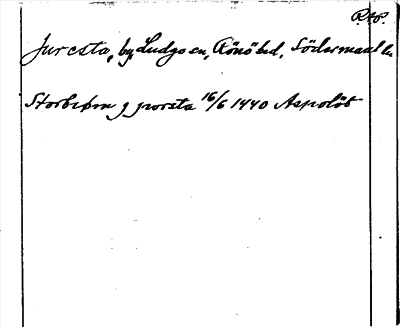 R.A.P.
Juresta, by, Ludgo sn, Rönö hd, Södermanl ln
Storbiørn j jvorsta 16/6 1440 Aspolöt